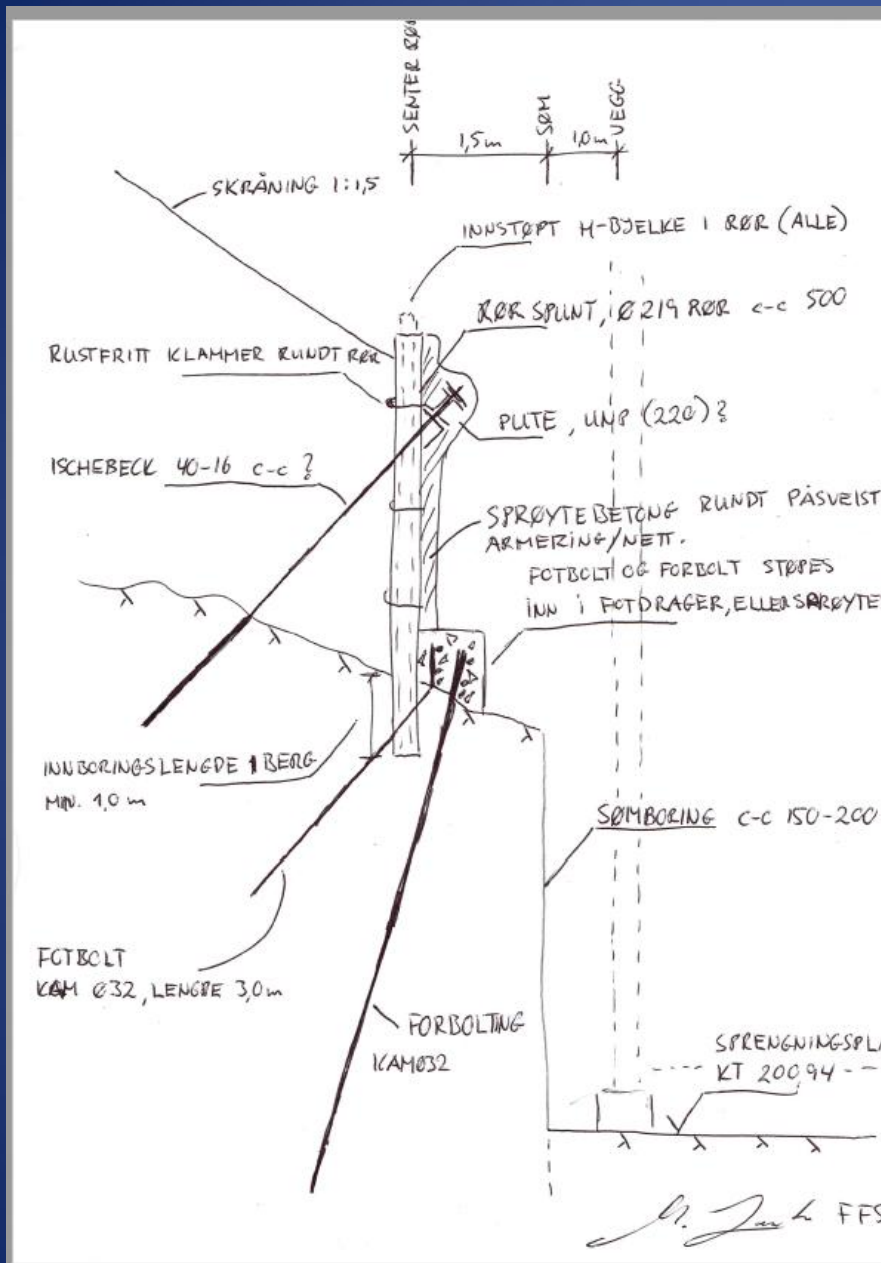 SENTER RØR
1,5m
SØM
1,0m
VEGG
SKRÅNING 1:1,5
INNSTØPT H-BJELKE I RØR (ALLE)
RØRSPUNT, Ø219 RØR c-c 500
RUSTFRITT KLAMMER RUNDT RØR
PUTE, UNP (220)?
ISCHEBECK 40-16 c-c ?
SPRØYTEBETONG RUNDT PÅSVEIST
ARMERING/NETT.
FOTBOLT OG FORBOLT STØPES
INN I FOTDRAGER, ELLER SPRØYTE
INNBORINGSLENGDE I BERG
MIN. 1,0 m
SØMBORING c-c 150-200
FOTBOLT
KAM Ø32, LENGDE 3,0m
FORBOLTING
KAMØ32
SPRENGNINGSPLA
KT 200,94
FFS